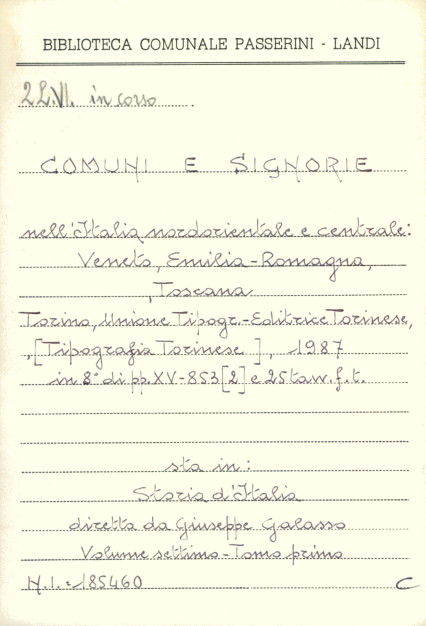 BIBLIOTECA COMUNALE PASSERINI - LANDI
2L.VI. in corso
COMUNI E SIGNORIE
nell'Italia nordorientale e centrale:
Veneto, Emilia-Romagna,
,Toscana
Torino, Unione Tipogr.-Editrice Torinese,
,[Tipografia Torinese ], 1987
in 8° di pp. XV-853[2] e 25 tavv. f.t.
sta in:
Storia d'Italia
diretta da Giuseppe Galasso
Volume settimo - Tomo primo
N.I. = 185460 C